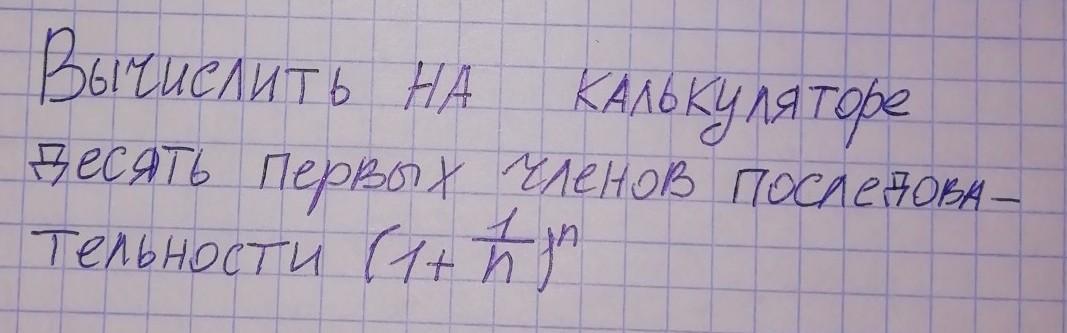 Вычислить на калькуляторе
десять первых членов последова-
тельности (1+1/n)^n